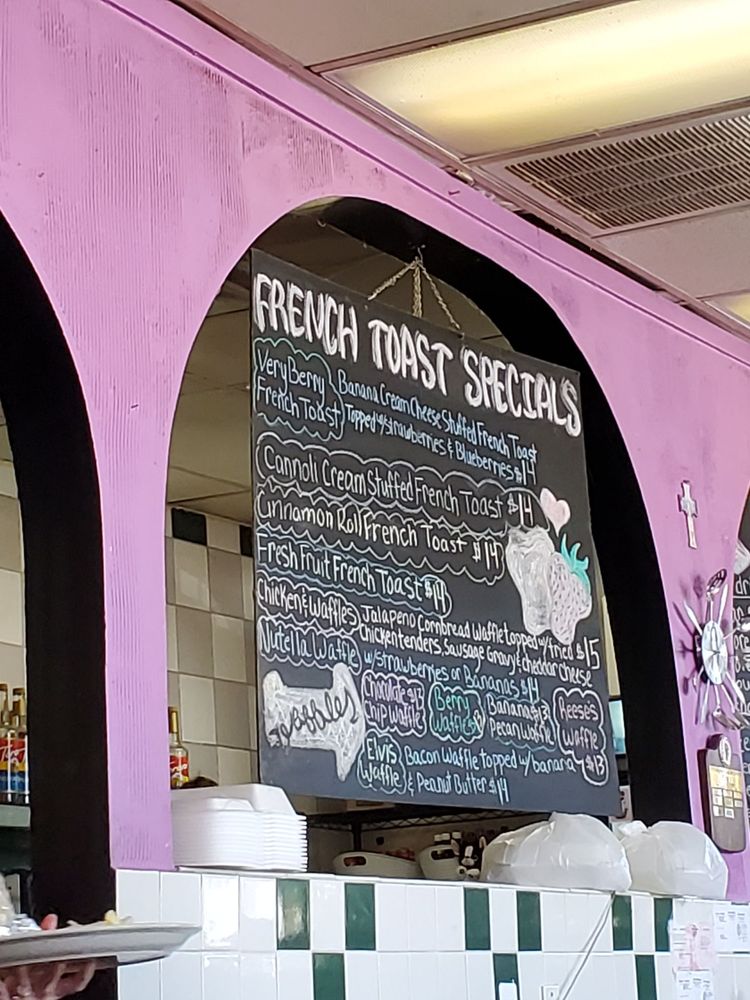 FRENCH TOAST SPECIALS
Very Berry
French Toast
Banana Cream Cheese Stuffed French Toast
Topped w/strawberries & Blueberries $14
Cannoli Cream Stuffed French Toast $14
Cinnamon Roll French Toast $14
Fresh Fruit French Toast $14
Chicken & Waffles
Jalapeno Cornbread Waffle topped w/fried $15
chicken tenders, sausage gravy & cheddar cheese
Nutella Waffle w/strawberries or Bananas $14
Waffles
Chocolate $13
Chip Waffle
Berry
Waffle
Banana $13
Pecan Waffle
Reese's
Waffle
$13
Elvis
Waffle
Bacon Waffle topped w/ banana
& Peanut Butter $14